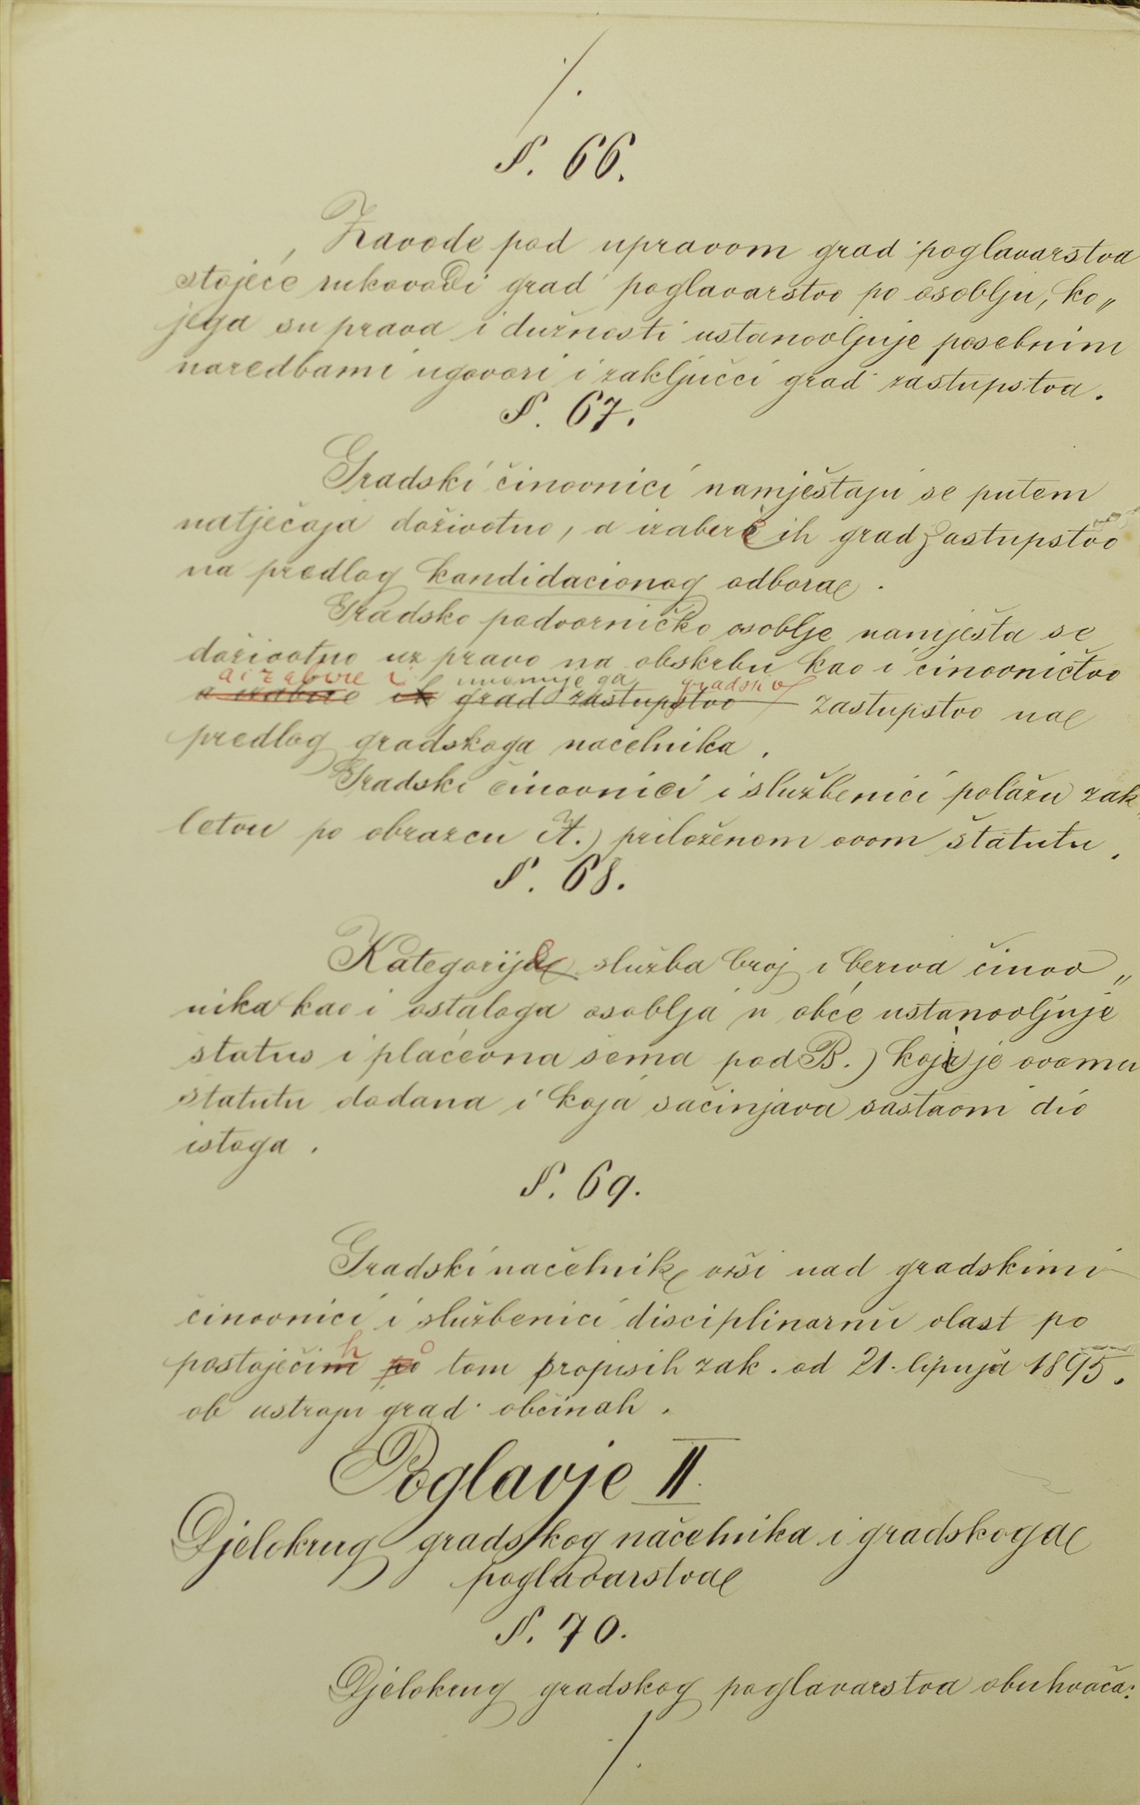 ./.
§. 66.
Zavode pod upravom grad. poglavarstva
stojeće rukovodi grad. poglavarstvo po osoblju, ko„
jega su prava i dužnosti ustanovljuje posebnim
naredbami ugovori i zaključci grad. zastupstva.
§. 67.
Gradski činovnici namještaju se putem
natječaja doživotno, a izabere ih grad zastupstvo
na predlog kandidacionog odbora.
Gradsko podvorničko osoblje namješta se
doživotno uz pravo na obskrbu kao i činovničtvo
a izabire i imenuje ga gradsko
a izabire ih grad zastupstvo zastupstvo na
predlog gradskoga načelnika.
Gradski činovnici i službenici polažu zak„
letvu po obrazcu A.) priloženom ovom štatutu.
§. 68.
Kategorije služba broj i beriva činov„
nika kao i ostaloga osoblja u obće ustanovljuje
status i plaćevna šema pod B.) koji je ovomu
statutu dodana i koja sačinjava sastavni dio
istoga.
§. 69.
Gradski načelnik vrši nad gradskimi
činovnici i službenici disciplinarnu vlast po
postojećih o tom propisih zak. od 21. lipnja 1895.
ob ustroju grad. občinah.
Poglavje II.
Djelokrug gradskog načelnika i gradskoga
poglavarstva
§. 70.
Djelokrug gradskog poglavarstva obuhvaća:
./.